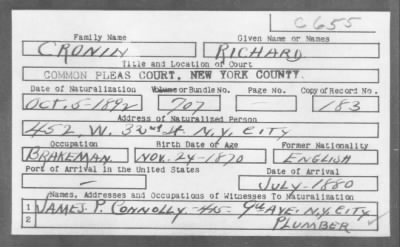 C 655
Family Name Given Name or Names
CRONIN RICHARD
Title and Location of Court
COMMON PLEAS COURT, NEW YORK COUNTY.
Date of Naturalization Volume or Bundle No. Page No. Copy of Record No.
OCT. 5-1892 707 — 183
Address of Naturalized Person
452 W. 32nd St. N.Y. CITY
Occupation Birth Date or Age Former Nationality
BRAKEMAN. NOV. 24-1870 ENGLISH
Port of Arrival in the United States Date of Arrival
— JULY-1880
Names, Addresses and Occupations of Witnesses To Naturalization
1 JAMES P. CONNOLLY-415- 9th AVE. N.Y. CITY
2 PLUMBER